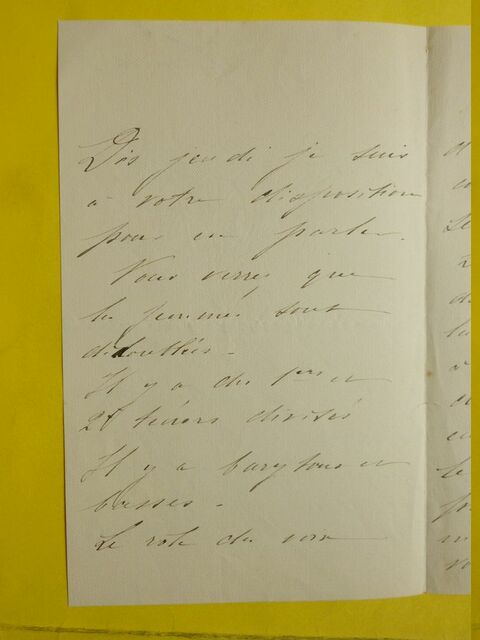 Dès jeudi je suis
à votre disposition
pour en parler.
Vous verrez que
les femmes sont
dédoublées.
Il y a des 1ers et
2ds ténors divisés
Il y a barytons et
basses.
Le role du